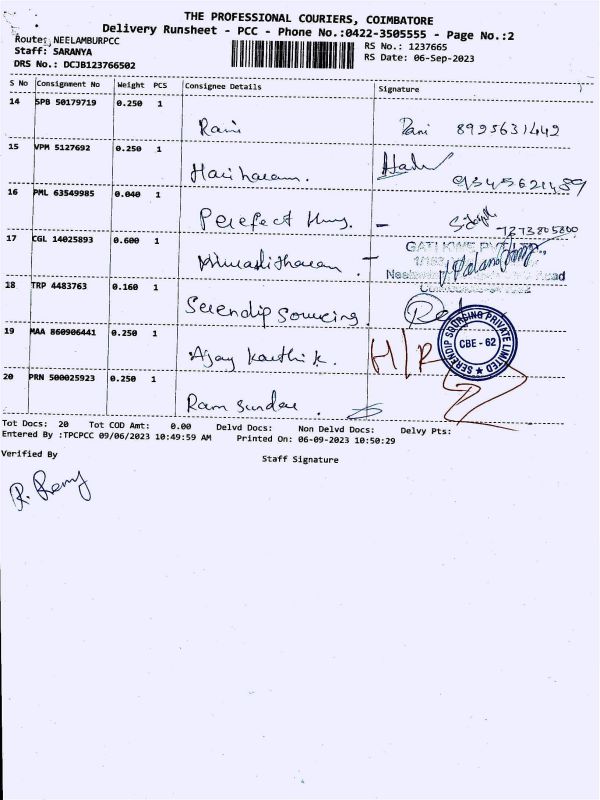 THE PROFESSIONAL COURIERS, COIMBATORE
Delivery Runsheet - PCC - Phone No.:0422-3505555 - Page No.:2
Route: NEELAMBURPCC
RS No.: 1237665
Staff: SARANYA
RS Date: 06-Sep-2023
DRS No.: DCJB123766502
S No Consignment No Weight PCS Consignee Details Signature
14 SPB 50179719 0.250 1
Rani Rani 8925631442
15 VPM 5127692 0.250 1
Hariharan. 9345621489
16 PML 63549985 0.040 1
Perefect 7273805800
17 CGL 14025893 0.600 1
GATI KWE
18 TRP 4483763 0.160 1
Serendip Sourcing.
19 MAA 860906441 0.250 1
SERENDIP SOURCING PRIVATE LIMITED
CBE - 62
Ajay Karthik. H/R
20 PRN 500025923 0.250 1
Ram Sundar.
Tot Docs: 20 Tot COD Amt: 0.00 Delvd Docs: Non Delvd Docs: Delvy Pts:
Entered By :TPCPCC 09/06/2023 10:49:59 AM Printed On: 06-09-2023 10:50:29
Verified By
Staff Signature